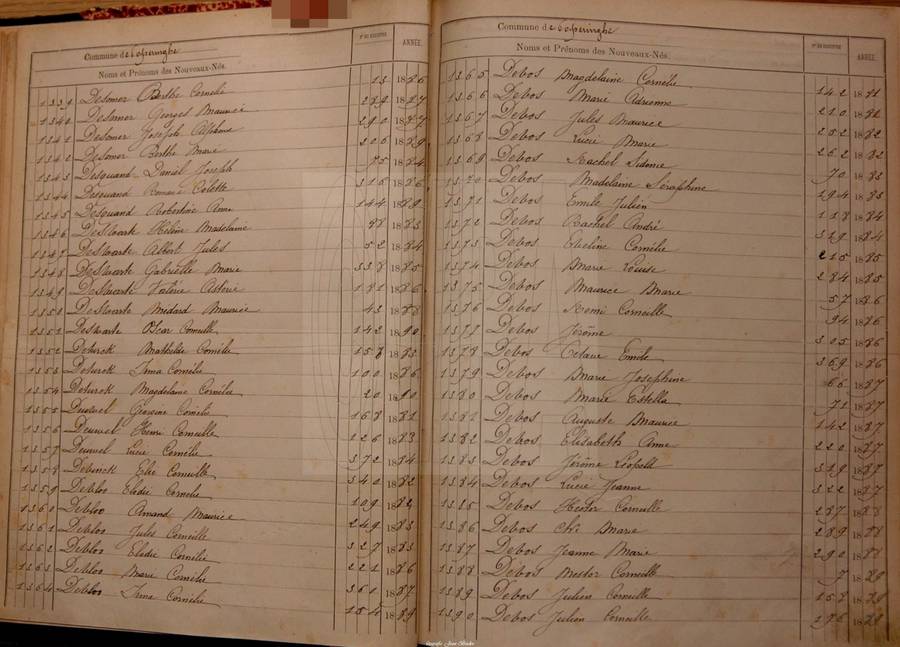 Commune de Poperinghe
Noms et Prénoms des Nouveaux-Nés.
N° DU REGISTRE
ANNÉE.
1339 Desomer Berthe Cornelie 13 1886
1340 Desomer Georges Maurice 229 1887
1341 Desomer Joseph Alphonse 290 1887
1342 Desomer Berthe Marie 206 1889
1343 Desquand Daniel Joseph 85 1884
1344 Desquand Romain Colette 316 1886
1345 Desquand Robertine Anna 144 1889
1346 Deswarte Helène Madelaine 88 1883
1347 Deswarte Albert Jules 52 1884
1348 Deswarte Gabrielle Marie 338 1885
1349 Deswarte Valérie Astérie 181 1886
1350 Deswarte Medard Maurice 43 1888
1351 Deswarte Oscar Corneille 142 1890
1352 Deturck Mathilde Cornélie 158 1883
1353 Deturck Irma Cornélie 100 1886
1354 Deturck Magdelaine Cornélie 20 1890
1355 Georgine Cornélie 168 1881
1356 Deuwel Henri Corneille 126 1883
1357 Deuwel Lucie Cornélie 372 1884
1358 Debinck Elie Corneille 340 1882
1359 Debloo Elodie Cornelie 109 1882
1360 Debloo Amand Maurice 249 1883
1361 Debloo Jules Corneille 327 1883
1362 Debloo Elodie Cornélie 221 1886
1363 Debloo Marie Cornélie 361 1887
1364 Debloo Irma Cornélie 154 1889
Commune de Poperinghe
Noms et Prénoms des Nouveaux-Nés.
N° DU REGISTRE
ANNÉE.
1365 Debos Magdelaine Cornélie 142 1881
1366 Debos Marie Adrienne 210 1882
1367 Debos Jules Maurice 252 1882
1368 Debos Lucie Marie 262 1882
1369 Debos Rachel Sidonie 70 1883
1370 Debos Madelaine Séraphine 194 1883
1371 Debos Emile Julien 118 1884
1372 Debos Rachel André 329 1884
1373 Debos Eveline Cornélie 215 1885
1374 Debos Marie Louise 284 1885
1375 Debos Maurice Marie 57 1886
1376 Debos Remi Corneille 94 1886
1377 Debos Jérôme 305 1886
1378 Debos Octave Emile 369 1886
1379 Debos Marie Josephine 66 1887
1380 Debos Marie Estella 71 1887
1381 Debos Auguste Maurice 142 1887
1382 Debos Elisabeth Anne 220 1887
1383 Debos Jérôme Léopold 319 1887
1384 Debos Lucie Jeanne 322 1887
1385 Debos Hector Corneille 287 1888
1386 Debos Marie 289 1888
1387 Debos Jeanne Marie 290 1888
1388 Debos Nestor Corneille 7 1889
1389 Debos Julien Corneille 158 1889
1390 Debos Julien Corneille 276 1889